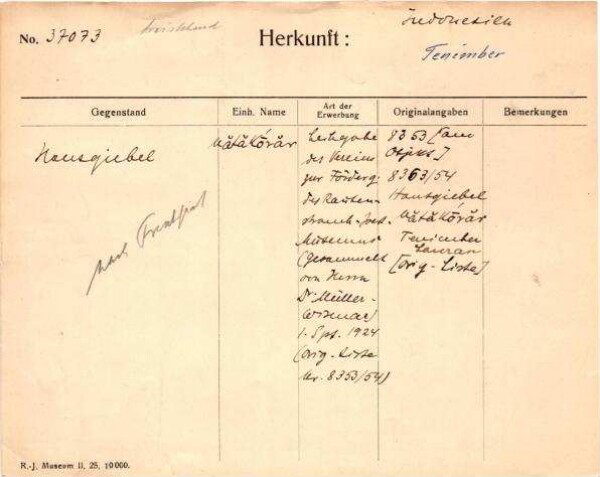 No. 37073
Herkunft:
Indonesien
Tenimber
Gegenstand
Einh. Name
Art der
Erwerbung
Originalangaben
Bemerkungen
Hausgiebel
nach Frankfurt
Leihgabe
des Vereins
zur Förderg.
des Rauten-
strauch-Joest-
Museums
(gesammelt
von Herrn
Dr Müller-
Wismar)
1. Spt. 1924
(orig-Liste
Nr. 8353/54)
8353 [am
Objkt]
8363/54
Hausgiebel
Tenimber
[orig-Liste]
R.-J. Museum II, 25, 10000.